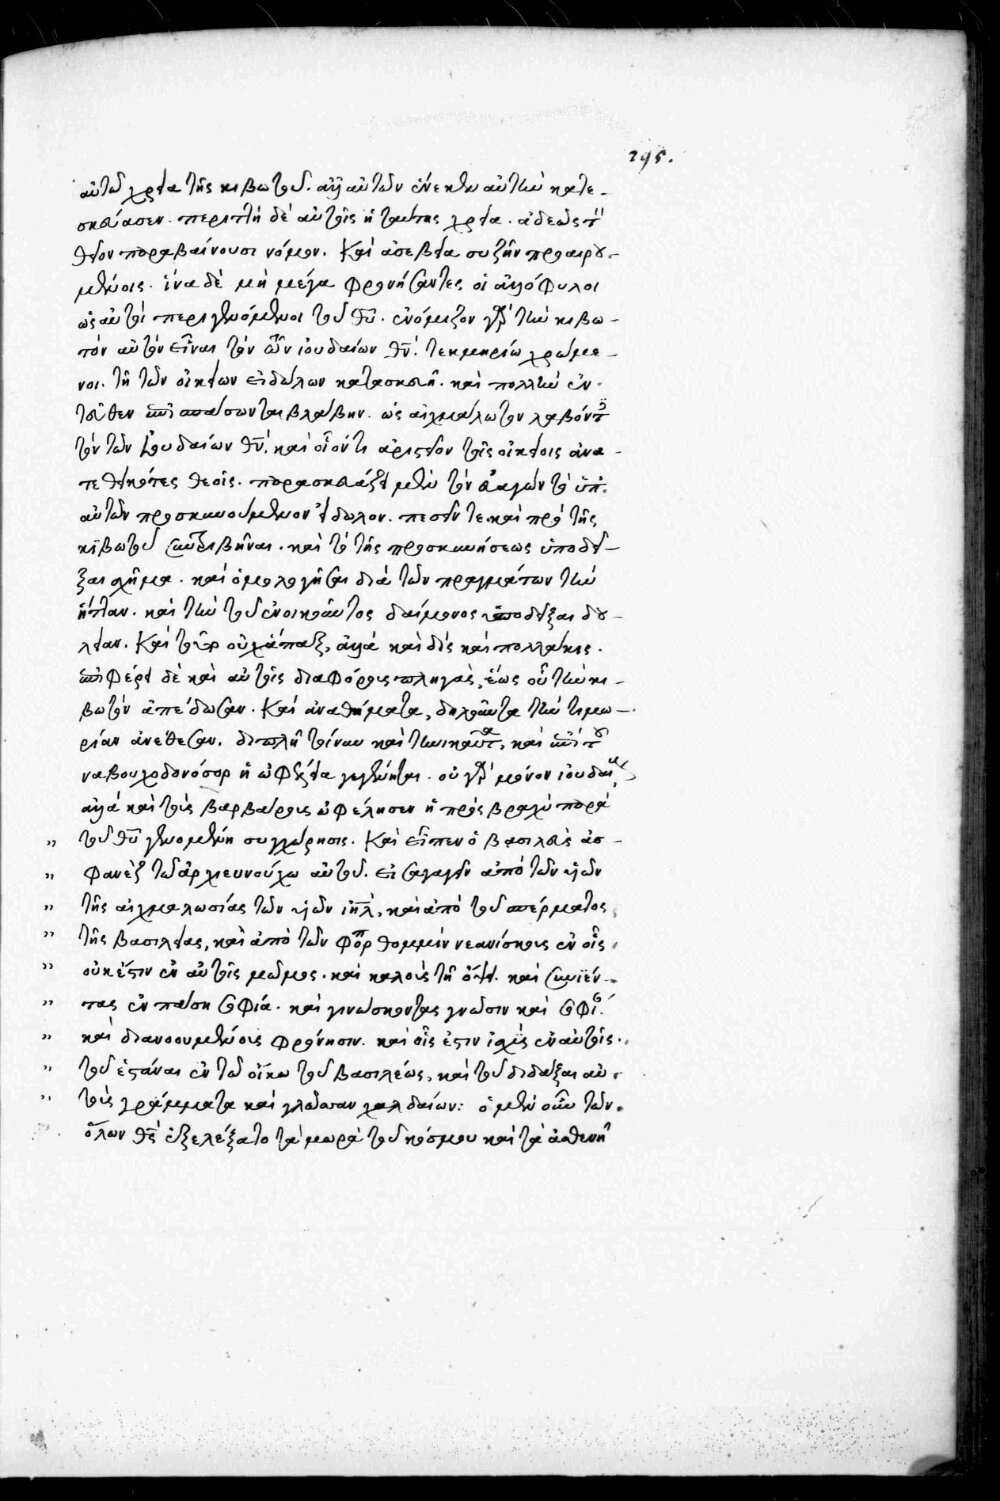 295.
αὐτῷ χρεία τῆς κιβωτοῦ. ἀλλ' αὐτῶν ἕνεκεν αὐτὴν κατε-
σκεύασεν. περιττὴ δὲ αὐτοῖς ἡ ταύτης χρεία. ἀδεῶς τὸν
θεῖον παραβαίνουσι νόμον. Καὶ ἀσεβεία συζῆν προαιρου-
μένοις. ἵνα δὲ μὴ μέγα φρονήσαντες οἱ ἀλλόφυλοι
ὡς αὐτοὶ περιγενόμενοι τοῦ θῦ. ἐνόμιζον γὰρ τὴν κιβω-
τὸν αὐτὸν εἶναι τὸν τῶν ἰουδαίων θν̄. τεκμηρίω χρώμε-
νοι. τῆ τῶν οἰκείων εἰδώλων κατασκευῆ. καὶ πολλὴν ἐν-
τεῦθεν σπάσωνται βλάβην. ὡς αἰχμάλωτον λαβόντες
τὸν τῶν Ἰουδαίων θν̄. καὶ οἷόν τι ἀριστεῖον τοῖς οἰκείοις ἀνα-
τεθεικότες θεοῖς. παρασκευάζει μὲν τὸν δαγὼν τὸ ὑπ'
αὐτῶν προσκυνούμενον εἴδωλον. πεσεῖν τε καὶ πρὸ τῆς
κιβωτοῦ συντριβῆναι. καὶ τὸ τῆς προσκυνήσεως ὑποδεῖ-
ξαι σχῆμα. καὶ ὁμολογῆσαι διὰ τῶν πραγμάτων τὴν
ἥτταν. καὶ τὴν τοῦ ἐνοικοῦντος δαίμονος ὑποδεῖξαι δου-
λείαν. Καὶ τοῦτο οὐχ ἅπαξ, ἀλλὰ καὶ δὶς καὶ πολλάκις.
ἐπιφέρει δὲ καὶ αὐτοῖς διαφόρους πληγάς, ἕως οὗ τὴν κι-
βωτὸν ἀπέδωσαν. Καὶ ἀναθήματα, δηλοῦντα τὴν τιμω-
ρίαν ἀνέθεσαν. διπλῆ τοίνυν καὶ τηνικαῦτα, καὶ ἐπὶ τοῦ
ναβουχοδονόσορ ἡ ὠφέλεια γεγένηται. οὐ γὰρ μόνον ἰουδαίους,
ἀλλὰ καὶ τοὺς βαρβάρους ὠφέλησεν ἡ πρὸς βραχὺ παρὰ
" τοῦ θῦ γενομένη συγχώρησις. Καὶ εἶπεν ὁ βασιλεὺς ἀσ-
" φανὲζ τῶ ἀρχιευνούχω αὐτοῦ. εἰσαγαγεῖν ἀπὸ τῶν υἱῶν
" τῆς αἰχμαλωσίας τῶν υἱῶν ιη̄λ, καὶ ἀπὸ τοῦ σπέρματος
" τῆς βασιλείας, καὶ ἀπὸ τῶν φορθομμὶν νεανίσκους ἐν οἷς
" οὐκ ἔστιν ἐν αὐτοῖς μῶμος. καὶ καλοὺς τῆ ὄψει. καὶ συνιέν-
" τας ἐν πάση σοφία. καὶ γινώσκοντας γνῶσιν καὶ σοφοὺς
" καὶ διανοουμένους φρόνησιν. καὶ οἷς ἐστιν ἰσχὺς ἐν αὐτοῖς.
" τοῦ ἑστάναι ἐν τῶ οἴκω τοῦ βασιλέως, καὶ τοῦ διδάξαι αὐ-
" τοὺς γράμματα καὶ γλῶσσαν χαλδαίων: ὁ μὲν οὖν τῶν
ὅλων θς̄ ἐξελέξατο τὰ μωρὰ τοῦ κόσμου καὶ τὰ ἀσθενῆ